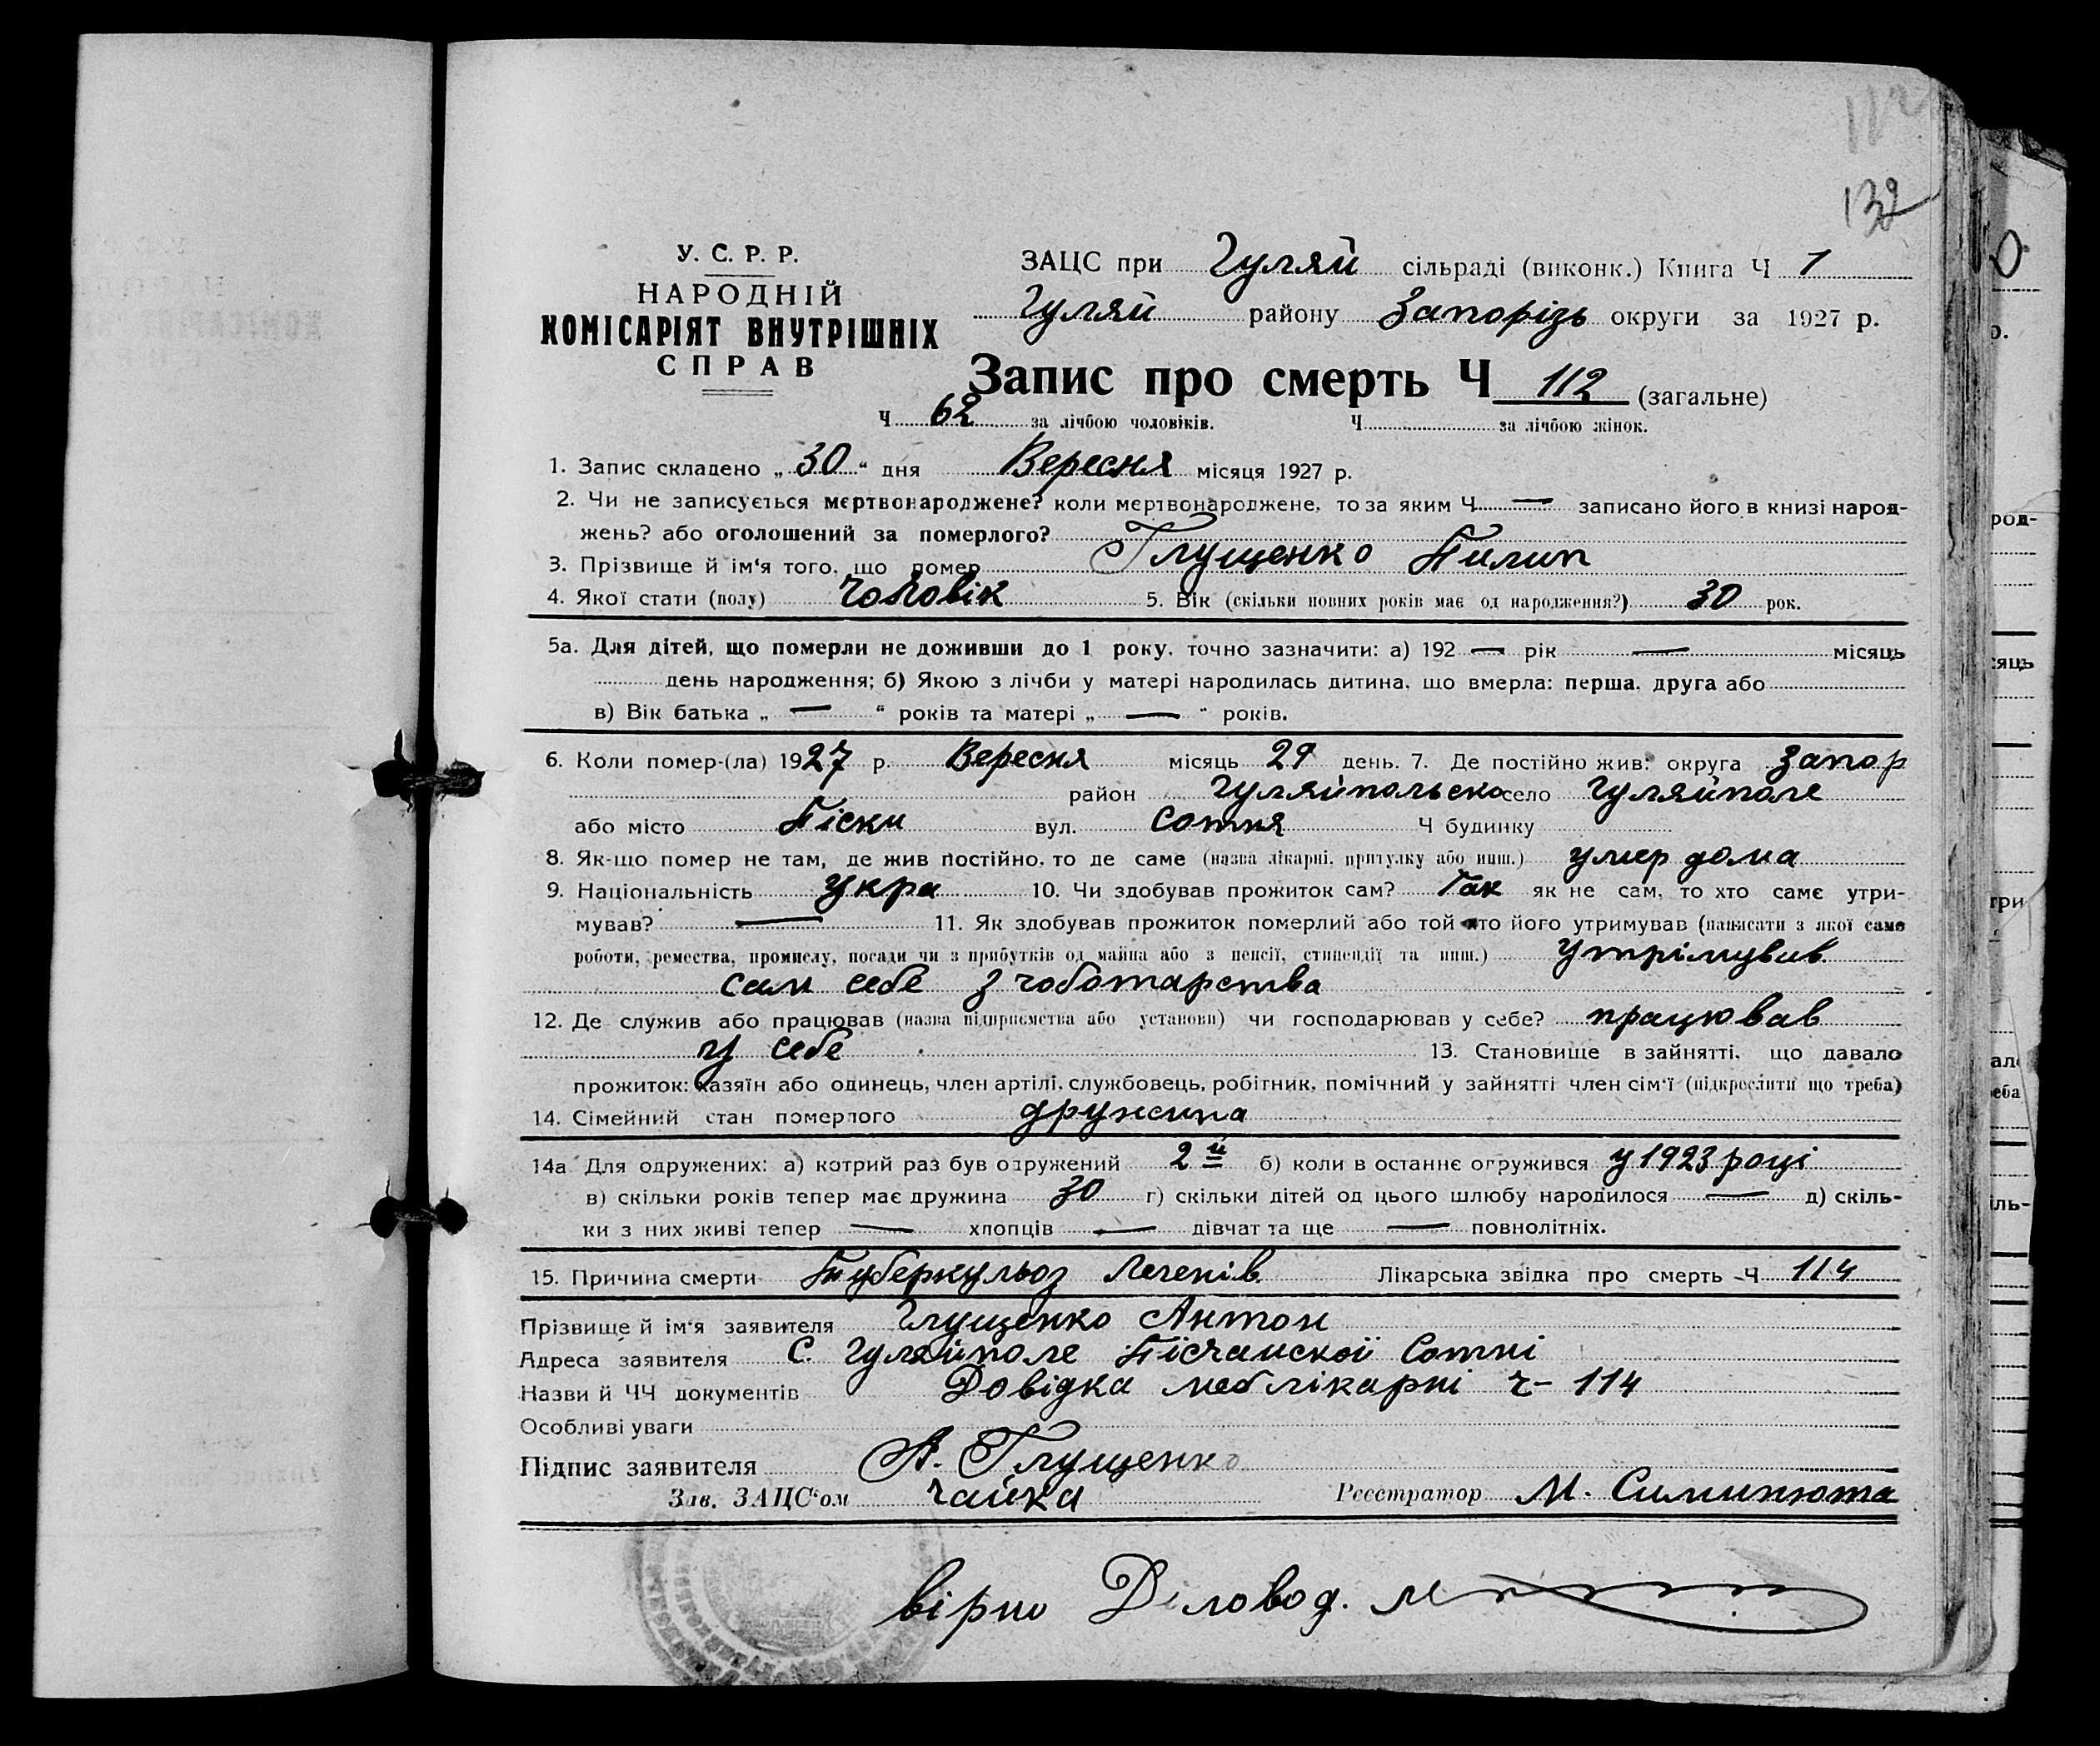 112
132
У. С. Р. Р.
НАРОДНІЙ
КОМІСАРІЯТ ВНУТРІШНІХ
СПРАВ
ЗАЦС при Гуляй сільраді (виконк.) Книга Ч 1
Гуляй району Запорізь округи за 1927 р.
Запис про смерть Ч 112 (загальне)
Ч 62 за лічбою чоловіків. Ч за лічбою жінок.
1. Запис складено „ 30 “ дня Вересня місяця 1927 р.
2. Чи не записується мертвонароджене? коли мертвонароджене, то за яким Ч — записано його в книзі народ-
жень? або оголошений за померлого?
3. Прізвище й ім‘я того, що помер Глущенко Пилип
4. Якої стати (полу) Чоловік 5. Вік (скільки повних років має од народження?) 30 рок.
5а. Для дітей, що померли не доживши до 1 року, точно зазначити: а) 192 — рік — місяць
день народження; б) Якою з лічби у матері народилась дитина, що вмерла: перша, друга або
в) Вік батька „ — “ років та матері „ — “ років.
6. Коли помер-(ла) 1927 р. Вересня місяць 29 день. 7. Де постійно жив: округа Запор
район Гуляйпольско село Гуляйполе
або місто Піски вул. Сотня Ч будинку
8. Як-що помер не там, де жив постійно, то де саме (назва лікарні, притулку або инш.) умер дома
9. Національність Укра 10. Чи здобував прожиток сам? Так як не сам, то хто саме утри-
мував? — 11. Як здобував прожиток померлий або той хто його утримував (написати з якої саме
роботи, ремества, промислу, посади чи з прибутків од майна або з пенсії, стипендії та инш.) Утрімував
сам себе з чоботарства
12. Де служив або працював (назва підприємства або установи) чи господарював у себе? працював
у себе 13. Становище в зайнятті, що давало
прожиток: хазяїн або одинець, член артілі, службовець, робітник, помічний у зайнятті член сім‘ї (підкреслити що треба)
14. Сімейний стан померлого дружина
14а Для одружених: а) котрий раз був одружений 2й б) коли в останнє одружився у 1923 році
в) скільки років тепер має дружина 30 г) скільки дітей од цього шлюбу народилося — д) скіль-
ки з них живі тепер — хлопців — дівчат та ще — повнолітніх.
15. Причина смерти Туберкульоз Легенів Лікарська звідка про смерть Ч 114
Прізвище й ім‘я заявителя Глущенко Антон
Адреса заявителя С. Гуляйполе Пісчанской Сотні
Назви й ЧЧ документів Довідка лікарні ч- 114
Особливі уваги
Підпис заявителя А. Глущенко
Зав. ЗАЦС‘ом Чайка Реєстратор М.
вірно Діловод.